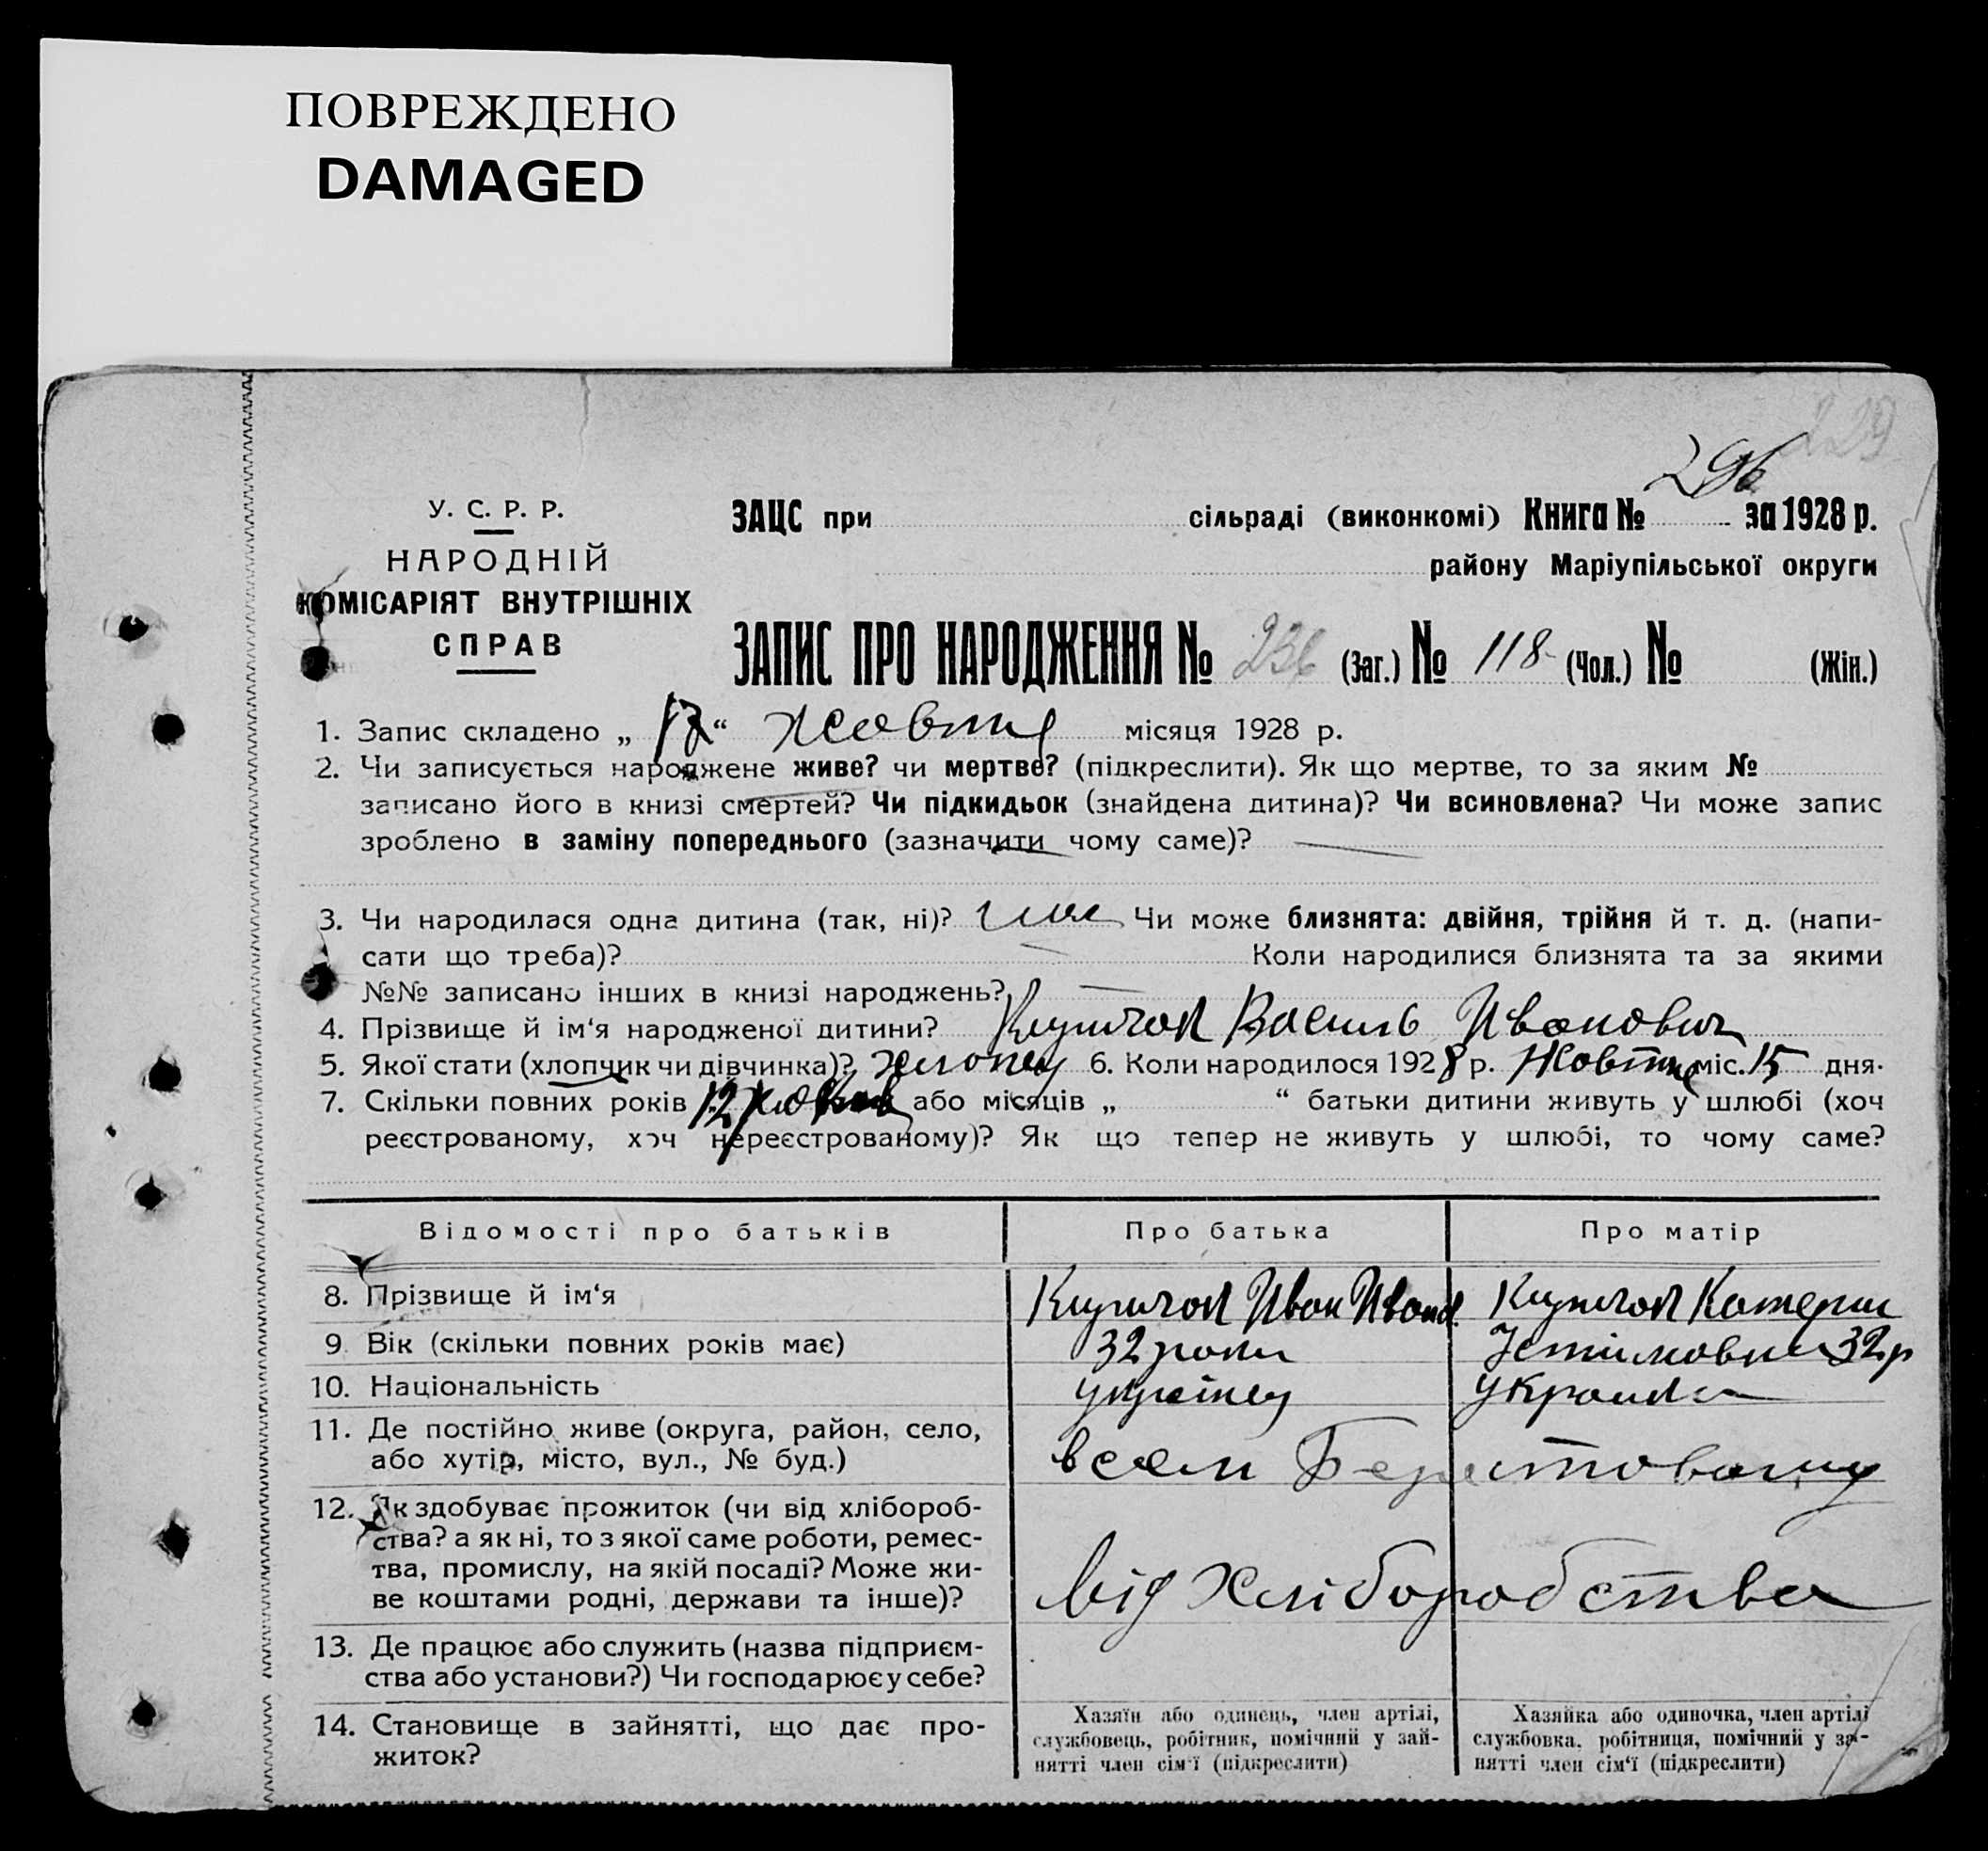 ПОВРЕЖДЕНО
DAMAGED
229
296
У. С. Р. Р.
НАРОДНІЙ
КОМІСАРІЯТ ВНУТРІШНІХ
СПРАВ
ЗАЦС при сільраді (виконкомі) Книга № за 1928 р.
району Маріупільської округи
ЗАПИС ПРО НАРОДЖЕННЯ № 236 (Заг.) № 118 (Чол.) № (Жін.)
1. Запис складено „ 17 “ Жовтня місяця 1928 р.
2. Чи записується народжене живе? чи мертве? (підкреслити). Як що мертве, то за яким №
записано його в книзі смертей? Чи підкидьок (знайдена дитина)? Чи всиновлена? Чи може запис
зроблено в заміну попереднього (зазначити чому саме)?
3. Чи народилася одна дитина (так, ні)? Чи може близнята: двійня, трійня й т. д. (напи-
сати що треба)? Коли народилися близнята та за якими
№№ записано інших в книзі народжень?
4. Прізвище й ім‘я народженої дитини? Василь Иванович
5. Якої стати (хлопчик чи дівчинка)? хлопец 6. Коли народилося 1928 р. Жовтня міс. 15 дня.
7. Скільки повних років 12 або місяців „ “ батьки дитини живуть у шлюбі (хоч
реєстрованому, хоч нереєстрованому)? Як що тепер не живуть у шлюбі, то чому саме?
Відомості про батьків Про батька Про матір
8. Прізвище й ім‘я Иван Иванов. Катерин
9. Вік (скільки повних років має) 32 роки Устимовна 32 р
10. Національність українец Украинка
11. Де постійно живе (округа, район, село,
або хутір, місто, вул., № буд.) в селі
12. Як здобуває прожиток (чи від хлібороб-
ства? а як ні, то з якої саме роботи, ремес-
тва, промислу, на якій посаді? Може жи-
ве коштами родні, держави та інше)? від хліборобства
13. Де працює або служить (назва підприєм-
ства або установи?) Чи господарює у себе?
14. Становище в зайнятті, що дає про-
житок?
Хазяїн або одинець, член артілі,
службовець, робітник, помічний у зай-
нятті член сім‘ї (підкреслити)
Хазяйка або одиночка, член артілі
службовка, робітниця, помічний у зай-
нятті член сім‘ї (підкреслити)